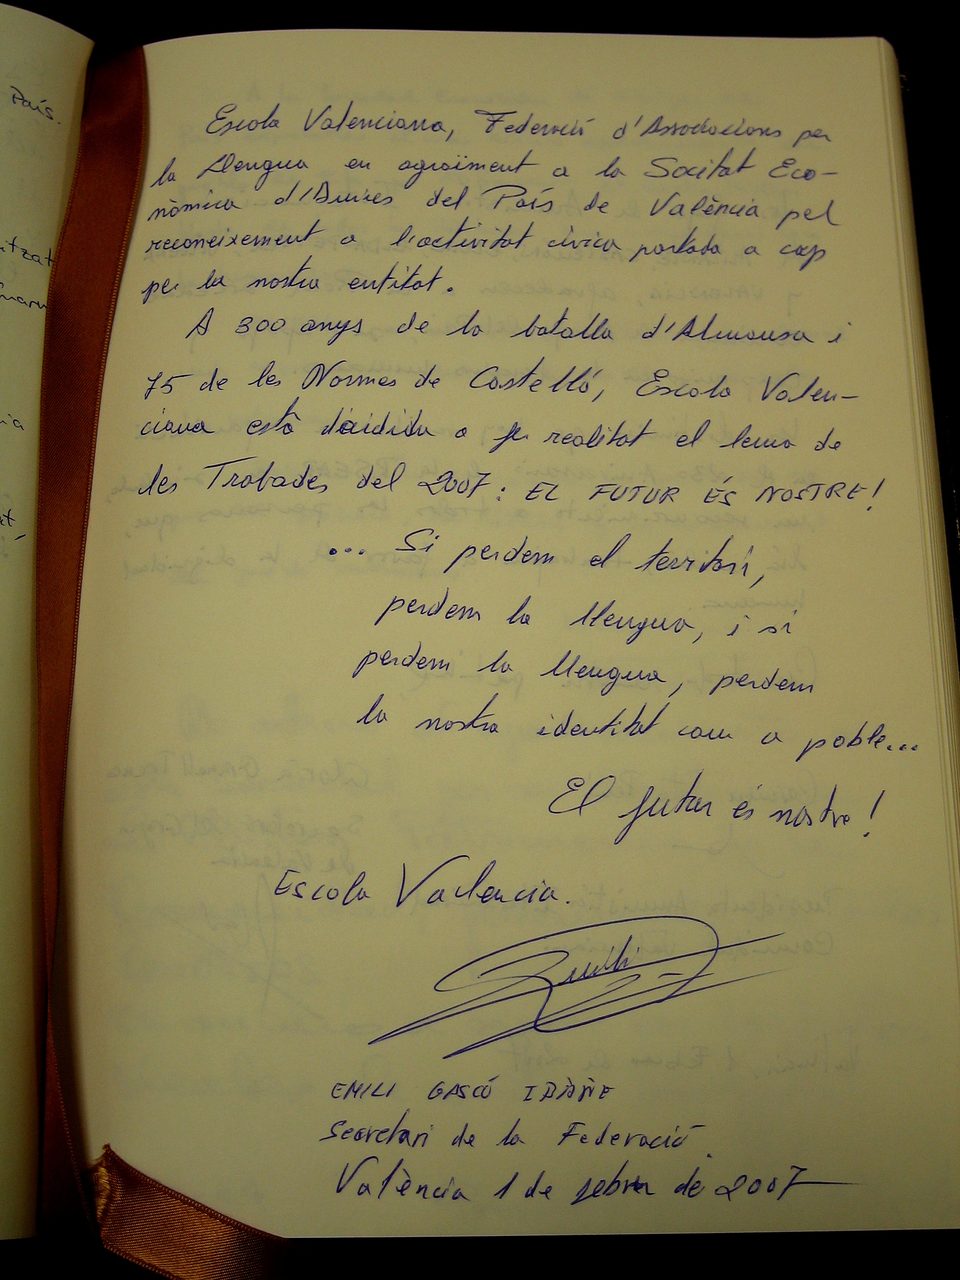 País.
itzat
ia
at,
Escola Valenciana, Federació d'Associacions per
la Llengua en agraïment a la Societat Eco-
nòmica d'Amics del País de València pel
reconeixement a l'activitat cívica portada a cap
per la nostra entitat.
A 300 anys de la batalla d'Almansa i
75 de les Normes de Castelló, Escola Valen-
ciana està decidida a fer realitat el lema de
les Trobades del 2007: EL FUTUR ÉS NOSTRE!
... Si perdem el territori,
perdem la llengua, i si
perdem la llengua, perdem
la nostra identitat com a poble...
El futur és nostre!
Escola Valencia.
EMILI GASCÓ
Secretari de la Federació.
València 1 de febrer de 2007